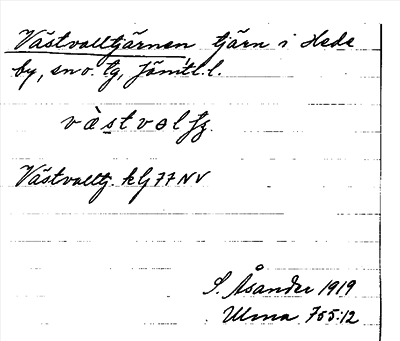 Västvalltjärnen tjärn i Hede
by, sn o. tg, Jämtl. l.
västvaltj.
Västvalltj. klj 77 NV
S. Åsander 1919
Ulma 755:12